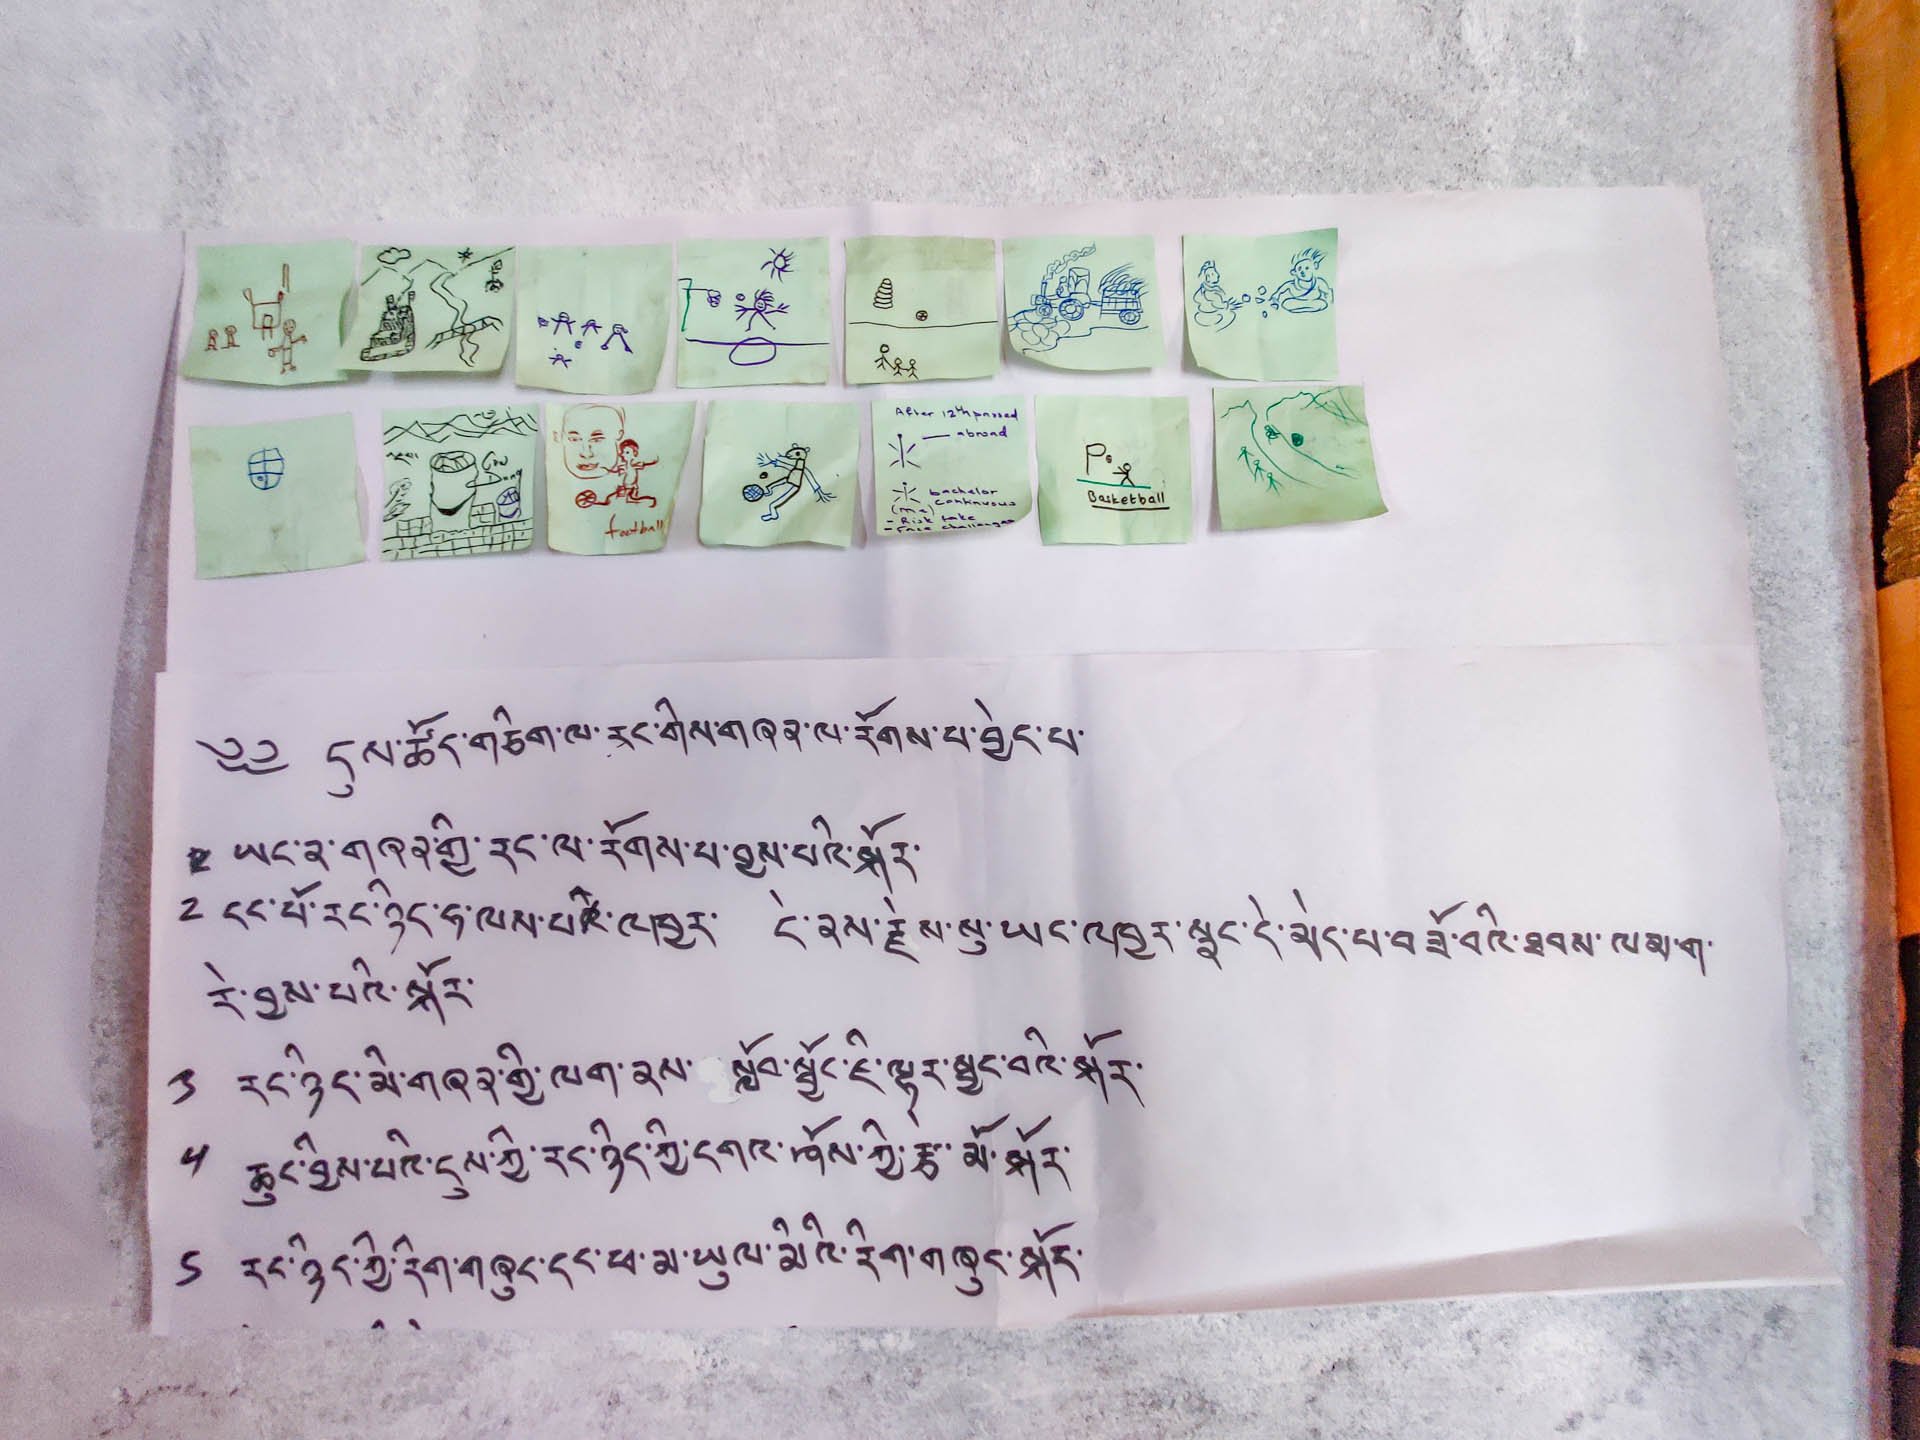 Cow
Dung
football
After 12th passed
abroad
bachelor
continuous
(me)
- Risk take
- Face challenges
Basketball
༄༅ དུས་ཚོད་གཅིག་ལ་རང་གིས་གཞན་ལ་རོགས་པ་བྱེད་པ་
ཡང་ན་གཞན་གྱི་རང་ལ་རོགས་པ་བྱས་པའི་སྐོར་
2 དང་པོ་རང་ཉིད་ཧ་ལས་པའི་འགྱུར་ དེ་ནས་རྗེས་སུ་ཡང་འགྱུར་སྣང་དེ་མེད་པ་བཟོ་བའི་ཐབས་ལམ་ག་
རེ་བྱས་པའི་སྐོར་
3 རང་ཉིད་མི་གཞན་གྱི་ལག་ནས་ སློབ་སྦྱོང་ཇི་ལྟར་སྦྱང་བའི་སྐོར་
4 ཆུང་བྱིས་པའི་དུས་ཀྱི་རང་ཉིད་ཀྱི་དགའ་ཤོས་ཀྱི་རྩེད་མོ་སྐོར་
5 རང་ཉིད་ཀྱི་རིག་གཞུང་དང་ཕ་མ་ཡུལ་མིའི་རིག་གཞུང་སྐོར་